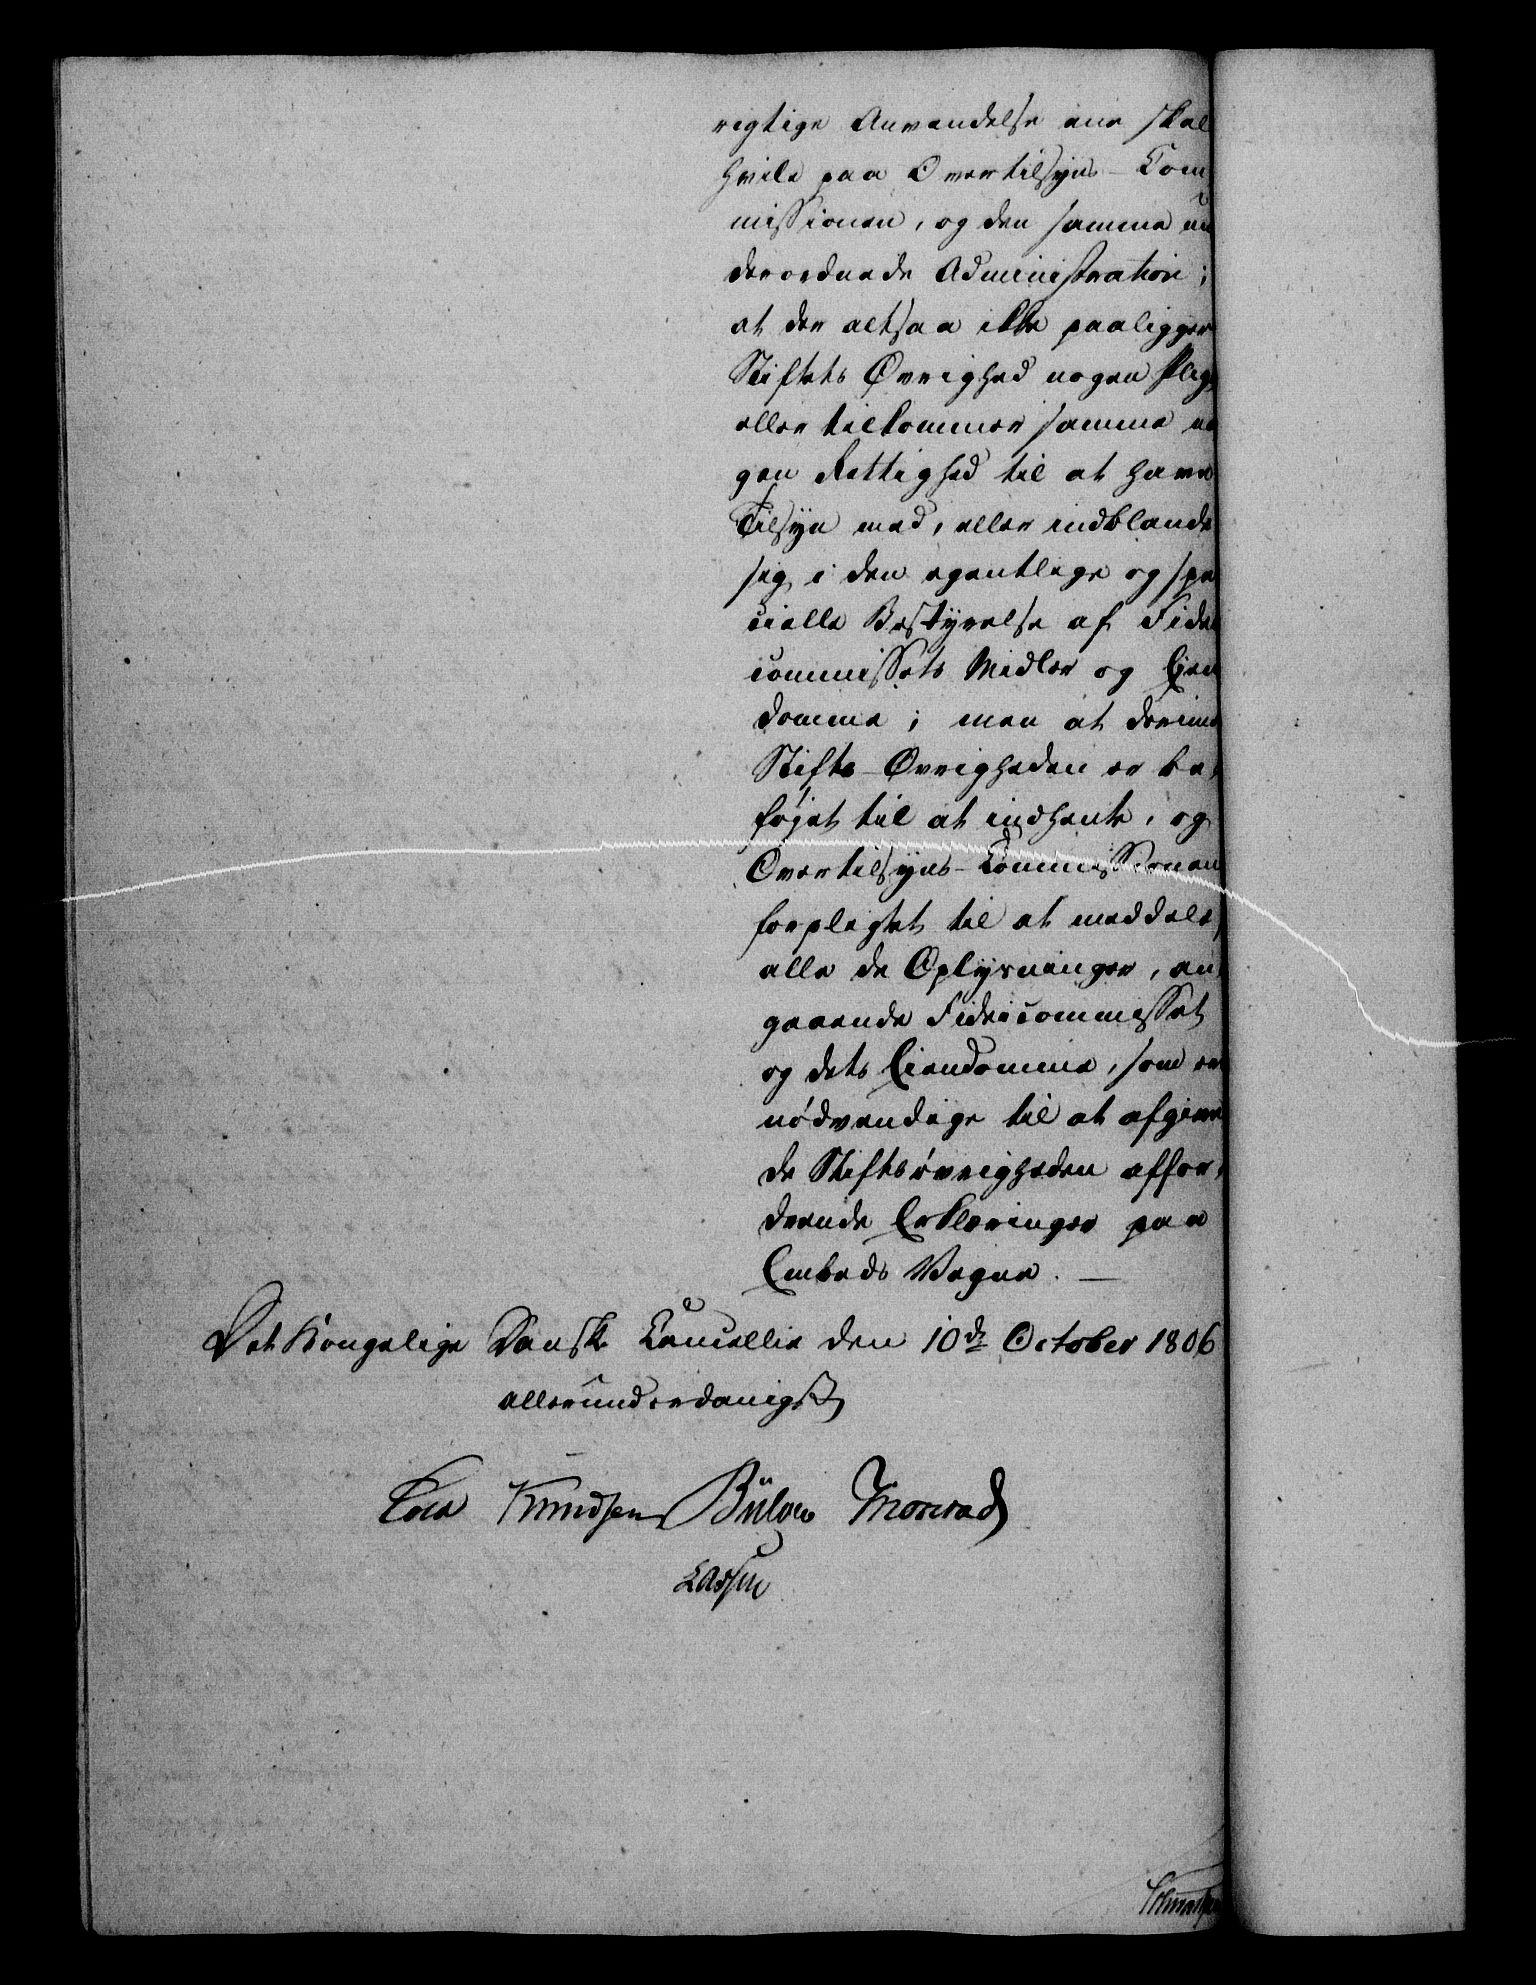 rigtige Anvendelse ene skal
hvile paa Overtilsyns-Com
missionen, og den samme un
derordnede Administration;
at der altsaa ikke paaligger
Stiftets Øvrighed nogen Pligt
eller tilkommer samme no
gen Rettighed til at have
Tilsyn med, eller indblande
sig i den egentlige og spe
cielle Bestyrelse af Fidei
commissets Midler og Ejen
domme; men at derimod
Stifts-Øvrigheden er be
føjet til at indhente, og
Overtilsyns-Commissionen
forpligtet til at meddele
alle de Oplysninger, an
gaaende Fideicommisset
og dets Eiendomme, som ere
nødvendige til at afgive
de Stiftsøvrigheden affor
drende Erklæringer paa
Embeds Vegne. —
Det Kongelige Danske Cancellie den 10de October 1806
allerunderdanigst
Knudsen Bülow Monrad
Lassen